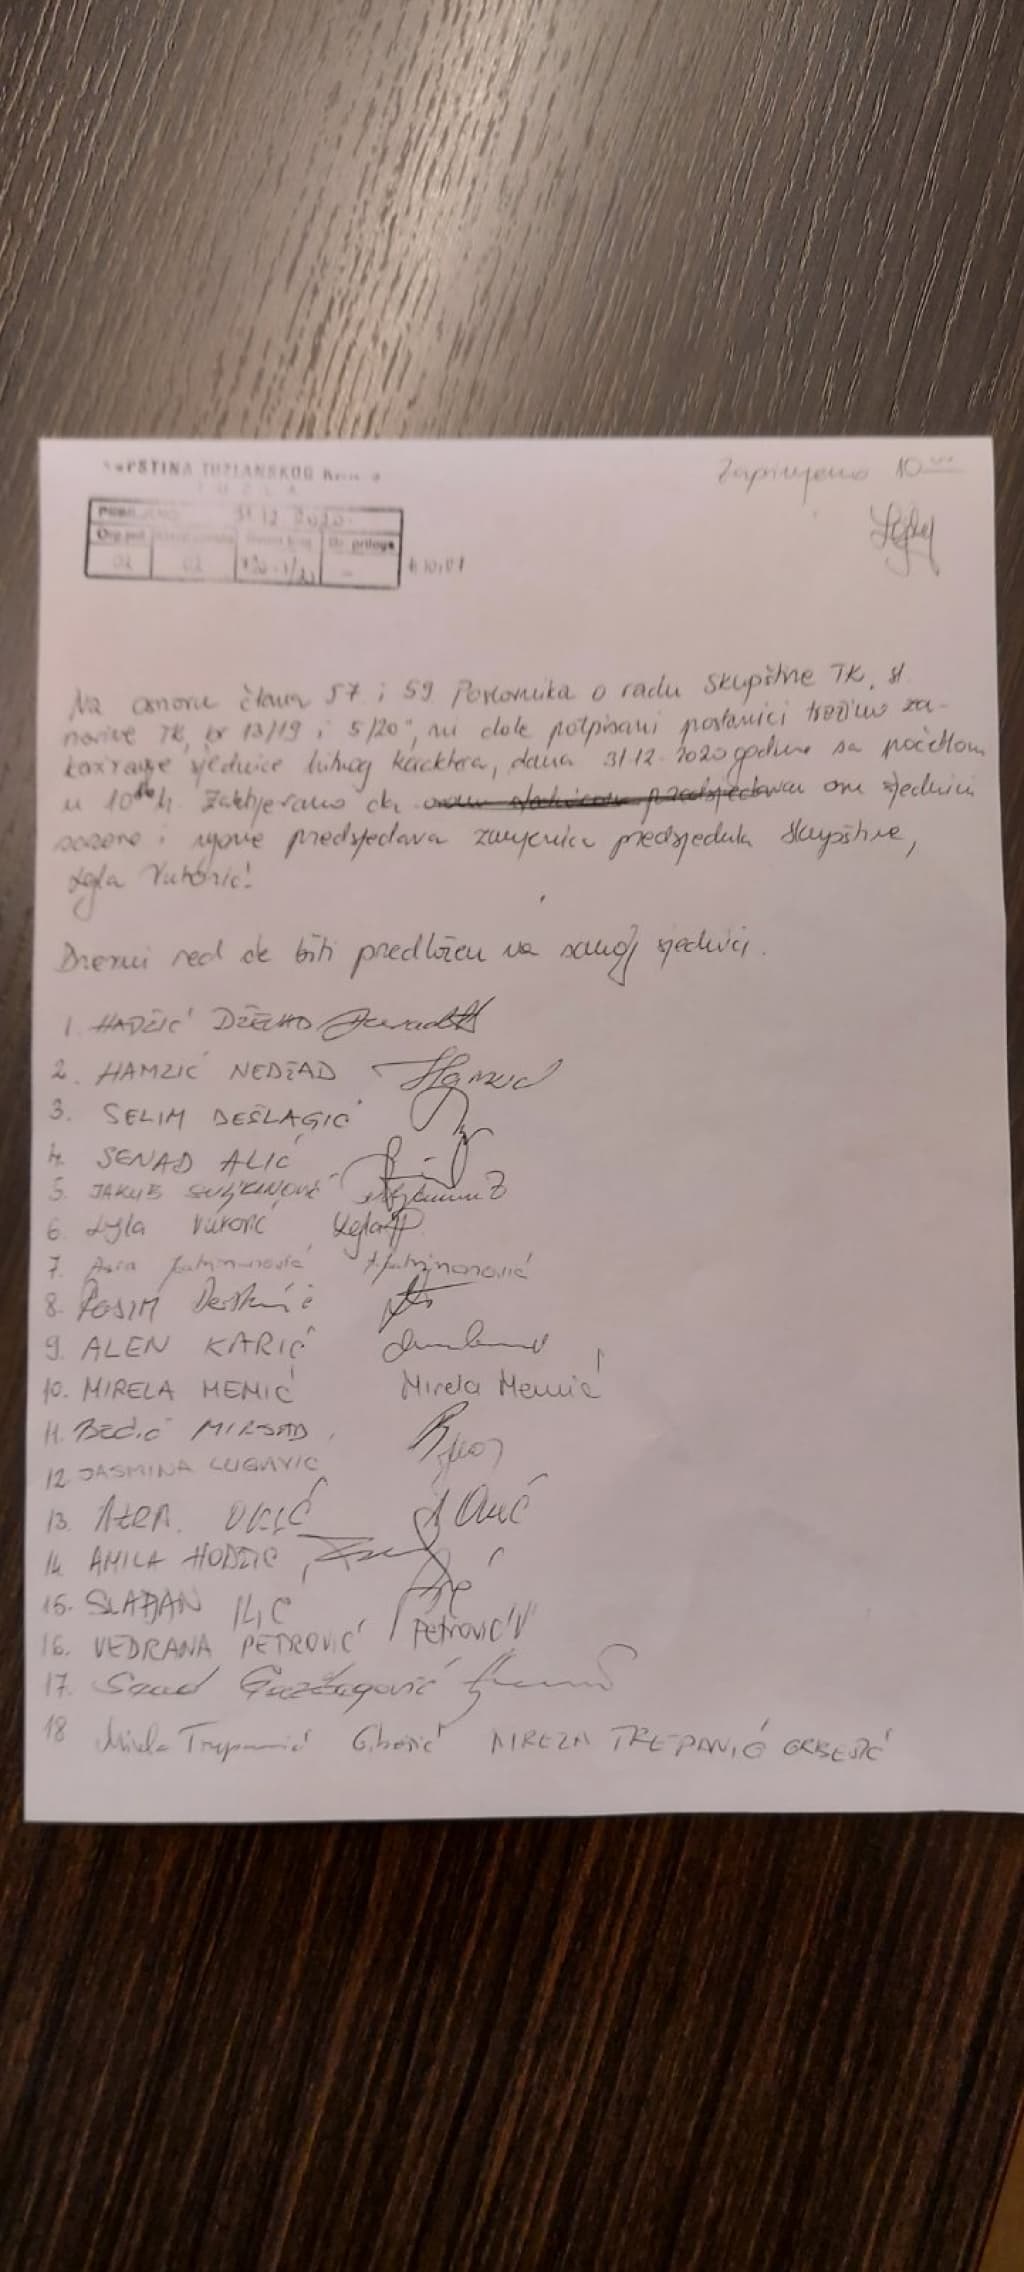 SKUPŠTINA TUZLANSKOG
Zaprimljeno 10
31.12.2020
Org.jed. Br. priloga
02 02
Na osnovu člana 57 i 59 Poslovnika o radu Skupštine TK, sl.
novine TK, br 13/19 i 5/20", mi dole potpisani poslanici tražimo za-
kazivanje sjednice hitnog karaktera, dana 31.12.2020 godine sa početkom
u 10 h. Zahtjevamo da ovu sjednicu
sazove i njome predsjedava zamjenica predsjednika Skupštine,
Lejla Vuković!
Dnevni red će biti predložen na samoj sjednici.
1. HADŽIĆ DŽEVAD
2. HAMZIĆ NEDŽAD
3. SELIM BEŠLAGIĆ
4. SENAD ALIĆ
5. JAKUB SULJKANOVIĆ
6. Lejla Vuković
7.
8. RASIM
9. ALEN KARIĆ
10. MIRELA MEMIĆ Mirela Memić
11. BEĆIĆ MIRSAD
12. JASMINA LUGAVIĆ
13. AZRA OKIĆ A Okić
14. AMILA HODŽIĆ
15. SLAĐAN ILIĆ
16. VEDRANA PETROVIĆ Petrović V
17. Gazdagović
18 MIREZA TREPANIĆ GRBEŠIĆ